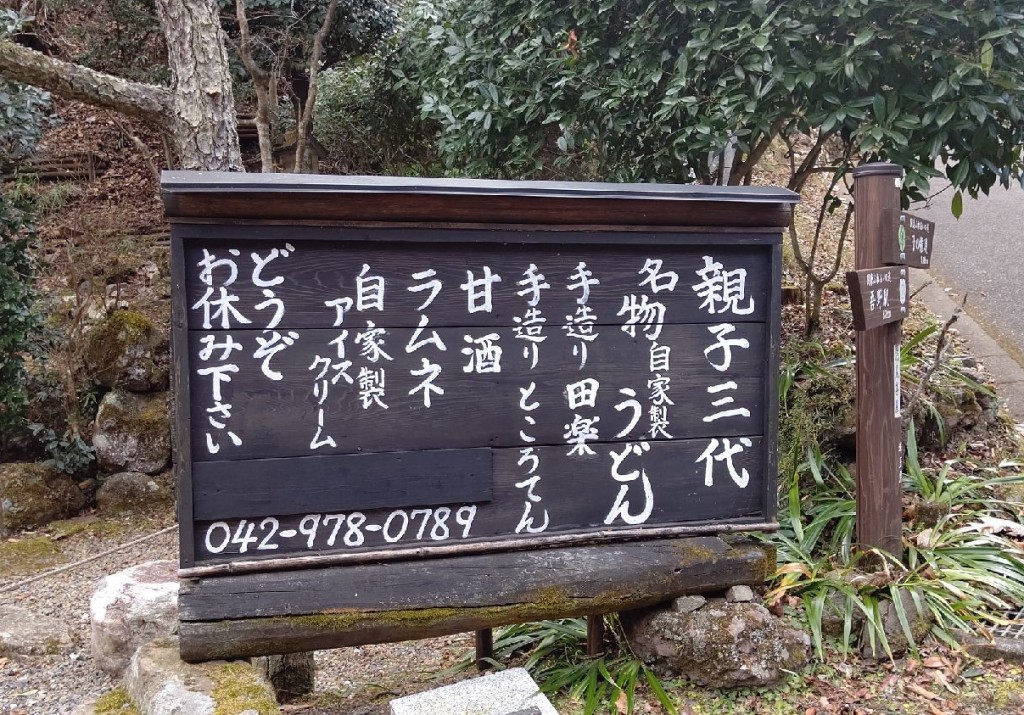 親子三代
名物自家製うどん
手造り田楽
手造りところてん
甘酒
ラムネ
自家製
アイスクリーム
どうぞ
お休み下さい
042-978-0789
吾野駅